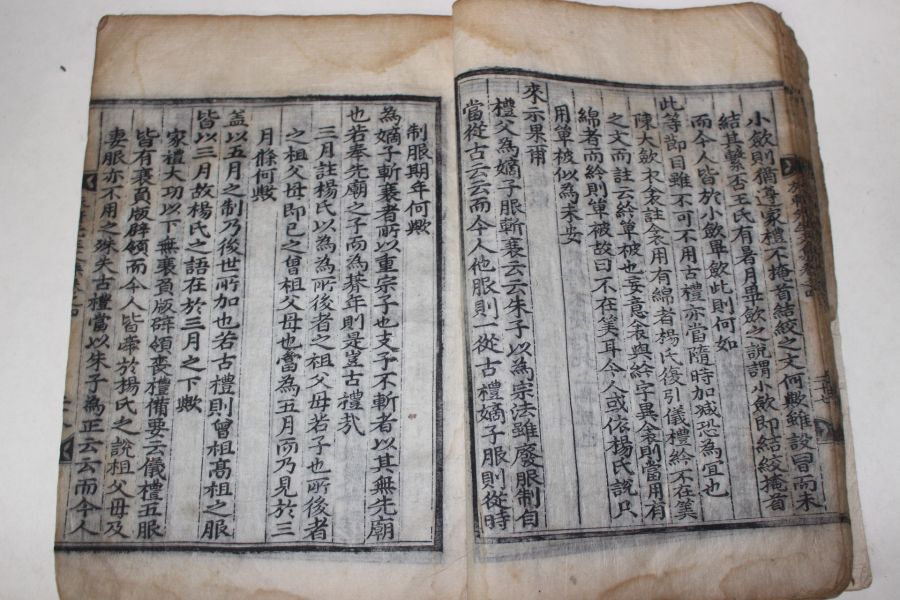 小斂則猶尊家禮不掩首結絞之文何歟雖設冒而未
結其擊否王氏有暑月畢斂之說謂小斂即結絞掩首
而今人皆於小斂畢斂此則何如
此等節目雖不可不用古禮亦當隋時加减恐為宜也
陳大斂衣衾註衾用有綿者楊氏復引儀禮紟不在筭
之文而註云紟單被也妄意衾與紟字異衾則當用有
綿者而紟則單被故曰不在筭耳今人或依楊氏說只
用單被似為未安
來示果爾
禮父為嫡子服斬衰云云朱子以為宗法雖廢服制自
當從古云云而今人他服則一從古禮嫡子服則從時
制服期年何歟
為嫡子斬衰者所以重宗子也支子不斬者以其無先廟
也若奉先廟之子而為朞年則是豈古禮㢤
三月註楊氏以為為所後者之祖父母若子也所後者
之祖父母即已之曾祖父母也當為五月而乃見於三
月條何歟
盖以五月之制乃後世所加也若古禮則曾祖髙祖之服
皆以三月故楊氏之語在於三月之下歟
家禮大功以下無衰負版辟領喪禮備要云儀禮五服
皆有衰負版辟領而今人皆
於楊氏之說祖父母及
妻服亦不用之殊失古禮當以朱子為正云云而今人